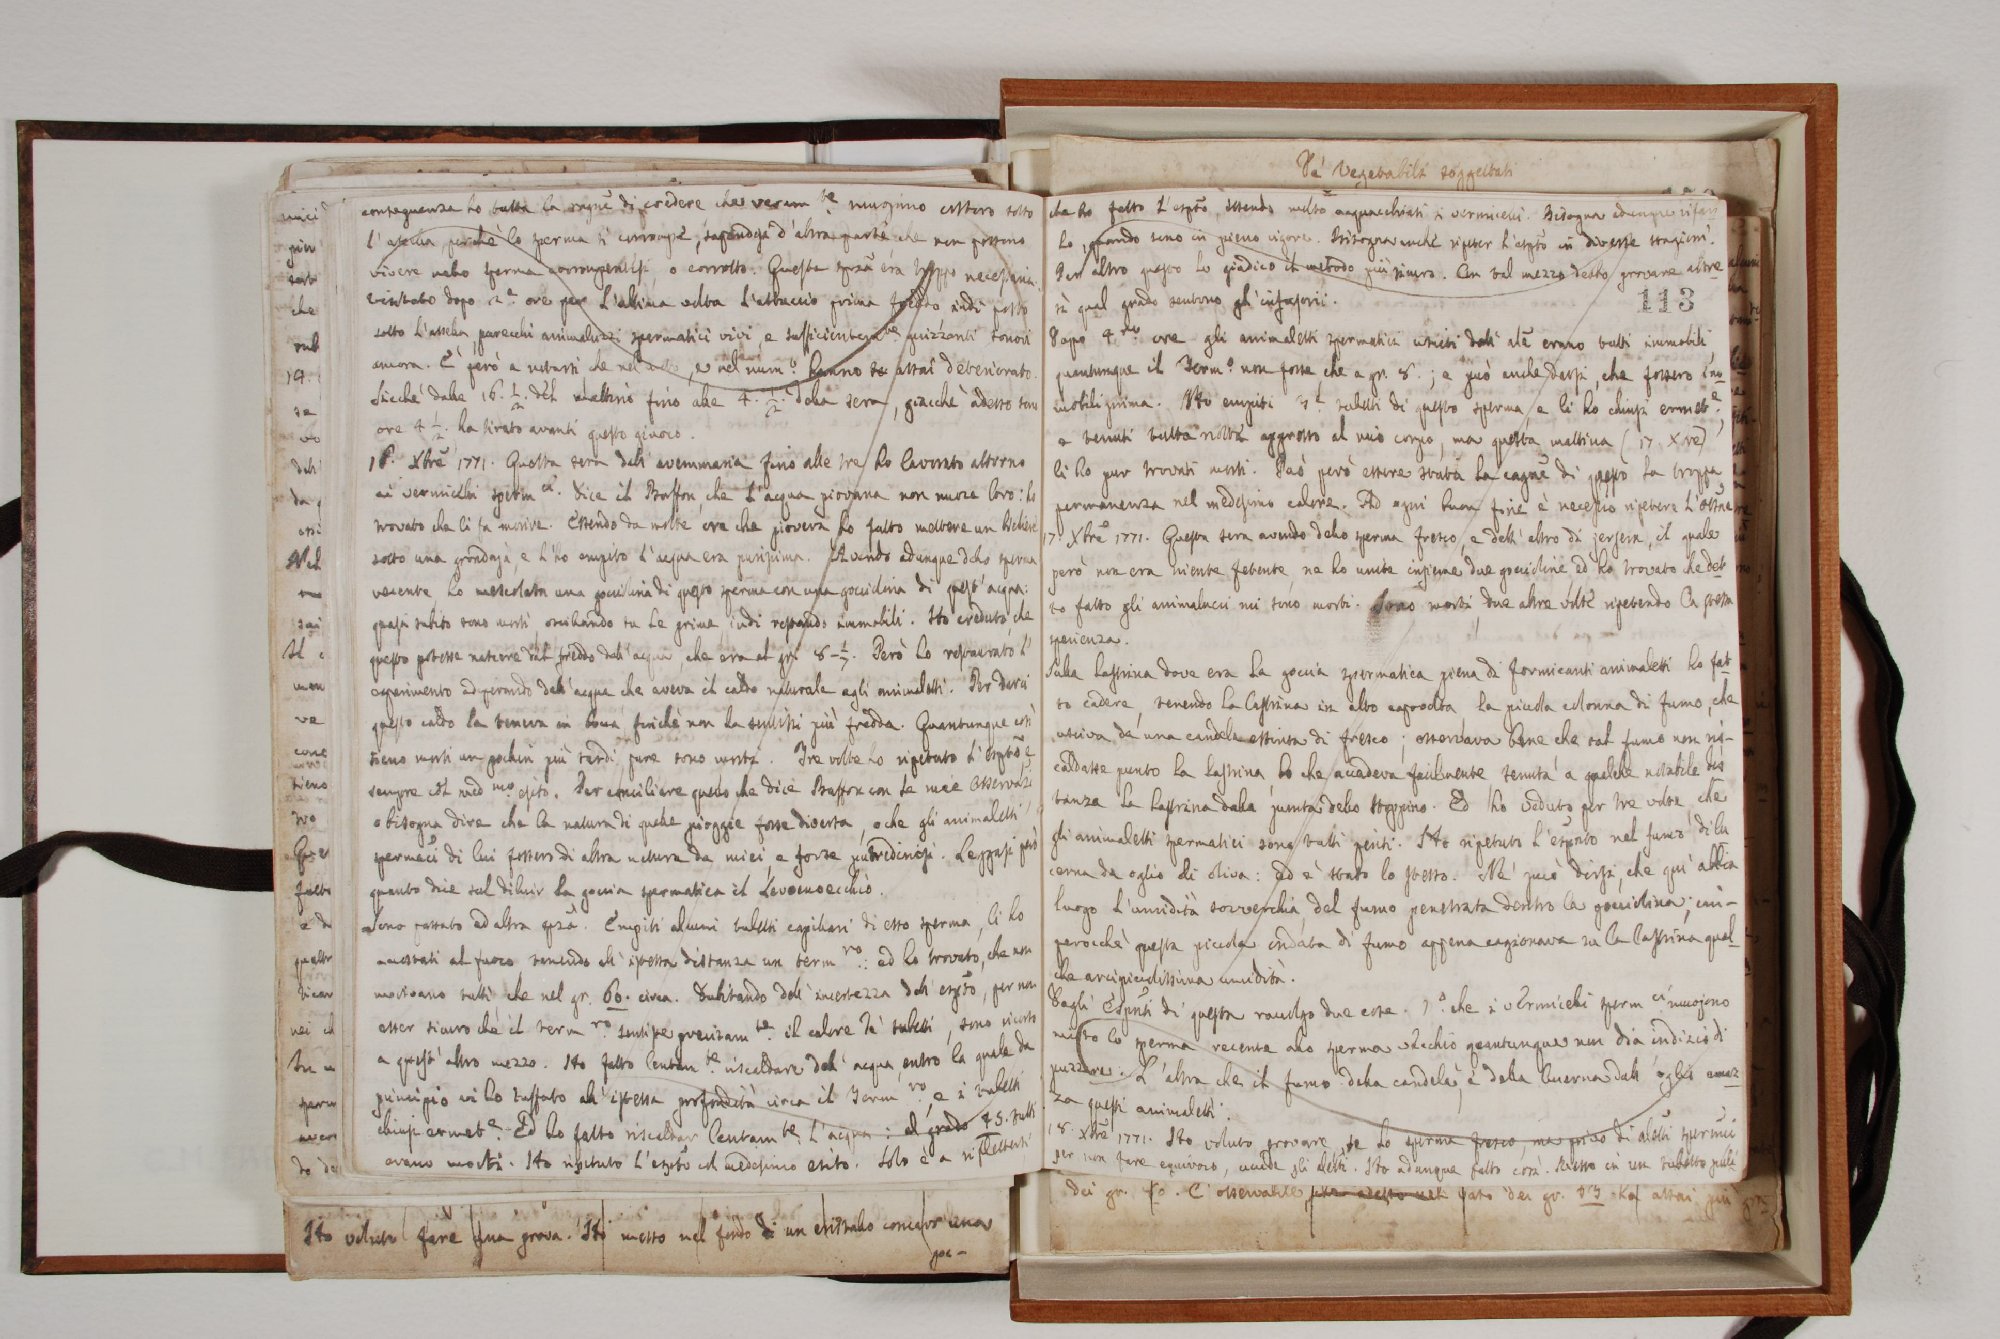 conseguenza ho tutta la ragne di credere che veram.te muojano
l'ascella, perchè lo sperma si corrompe, sapendosi d'altra parte che non possono
vivere nello sperma corrompentesi o corrotto. Questa sperza era troppo necessaria.
Visitato dopo 2.e ore per l'ultima volta l'attaccio prima freddo indi posto
sotto l'ascella, parecchi animaluzzi spermatici vivi, e sufficientem.te guizzanti sonovi
ancora. È però a notarsi che nel moto, e nel num.o hanno assai deteriorato.
Sicchè dalle 16. 1/2 del mattino fino alle 4. 1/2 della sera, giacchè adesso sono
ore 4 1/2 ha tirato avanti questo giuoco.
16. Xbre 1771. Questa sera dall'avemmaria fino alle tre ho lavorato attorno
ai vermicelli sperm.ci. Dice il Buffon che l'acqua piovana non nuoce loro: ho
trovato che li fa morire. Essendo da molte ore che pioveva ho fatto mettere un bichiere
sotto una grondaja e l'ho empito l'acqua era purissima. Avendo adunque dello sperma
recente ho mescolata una gocciolina di questo sperma con una gocciolina di quest'acqua:
quasi subito sono morti, oscillando su le prime, indi restando immobili. Ho creduto, che
questo potesse nascere dal freddo dell'acqua, che era al gr. 8 1/2. Però ho restaurato l'
esperimento adoperando dell'acqua che aveva il caldo naturale agli animaletti. Per darci
questo caldo la teneva in bocca finchè non la sentissi più fredda. Quantunque così
sieno morti un pochin più tardi, pure sono morti. Tre volte ho ripetuto l'espto e
sempre col med.mo esito. Per conciliare quello che dice Buffon con le mie osservazi
o bisogna dire che la natura di quelle pioggie fosse diversa, o che gli animaletti
spermaci di lui fossero di altra natura da miei, e forse putredinosi. Leggasi però
quanto dice sul diluir la goccia spermatica il Levvenoecchio.
Sono passato ad altra sprza. Empiti alcuni tubetti capillari di esso sperma, li ho
accostati al fuoco tenendo all'istessa distanza un term.ro: ed ho trovato, che non
morivano tutti che nel gr. 60. circa. Dubitando dell'incertezza dell'espto, per non
esser sicuro che il term.ro sentisse precisam.te il calore de' tubetti, sono ricorso
a quest'altro mezzo. Ho fatto lentam.te riscaldare dell'acqua entro la quale da
principio vi ho tuffato all'istessa profondità circa il Term.ro, e i tubetti
chiusi ermet.e. Ed ho fatto riscaldar lentam.te l'acqua: al grado 45. tutti
erano morti. Ho ripetuto l'espto col medesimo esito. Solo è a riflettersi,
Ho voluto fare una prova. Ho messo nel fondo di un cristallo concavo una
goc-
De' Vegetabili soggettati
che ho fatto l'espto, essendo molto acquacchiati i vermicelli. Bisogna adunque rifar
lo, quando sono in pieno vigore. Bisogna anche ripeter l'espto in diverse stagioni.
Per altro questo lo giudico il metodo più sicuro. Con tal mezzo debbo provare altre
sì qual grado sentono gl'infusorii.
113
Dopo 4.tro ore gli animaletti spermatici usciti dall' erano tutti immobili,
quantunque il Term.o non fosse che a gr. 8.; e può anche darsi, che fossero im
mobili prima. Ho empiti 3. tubetti di questo sperma, e li ho chiusi ermet.e,
e tenuti tutta notte appresso al mio corpo, ma questa mattina (17. Xbre)
li ho pur trovati morti. Può però essere stata la cagne di questo la troppa
permanenza nel medesimo calore. Ad ogni buon fine è necesso ripetere l'
17. Xbre 1771. Questa sera avendo dello sperma fresco, e dell'altro di jersera, il quale
però non era niente fetente, ne ho unite insieme due goccioline, ed ho trovato che det
to fatto gli animalucci mi sono morti. Sono morti due altre volte ripetendo la stessa
sperienza.
Sulla lastrina dove era la goccia spermatica piena di formicanti animaletti ho fat
to cadere, tenendo la lastrina in alto capovolta la piccola colonna di fumo, che
usciva da una candela estinta di fresco; osservava bene che tal fumo non ris-
caldasse punto la lastrina, lo che accadeva facilmente tenuta a qualche notabile dis
tanza la lastrina dalla punta dello stoppino. Ed ho veduto per tre volte, che
gli animaletti spermatici sono tutti periti. Ho ripetuto l'espmto nel fumo di lu
cerna da oglio di oliva: ed è stato lo stesso. Nè può dirsi, che qui abbia
luogo l'umidità soverchia del fumo penetrata dentro la gocciolina; im-
perocchè questa piccola ondata di fumo appena cagionava su la lastrina qual
che arcipiccolissima umidità.
Dagli Espmti di questa raccolgo due cose. 1.o che i vermicelli sperm.ci muojono
misto lo sperma recente allo sperma vecchio quantunque non dia indizio di
puzzore. L'altra che il fumo della candela, e della lucerna dall'oglio amaz
za questi animaletti.
18. Xbre 1771. Ho voluto provare, se lo sperma fresco, ma privo di aletti spermci
per non fare equivoco, uccide gli aletti. Ho adunque fatto così. Messo in un tubetto
dei gr. 50. È osservabile,